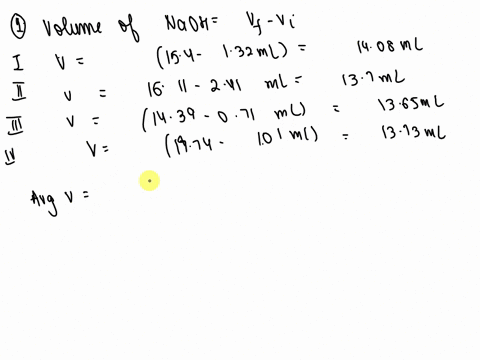 ① Volume of NaOH = Vf - Vi
I V = (15.4 - 1.32 mL) = 14.08 mL
II V = 16.11 - 2.41 mL = 13.7 mL
III V = (14.39 - 0.71 mL) = 13.65 mL
IV V = (14.74 - 1.01 mL) = 13.73 mL
Avg V =